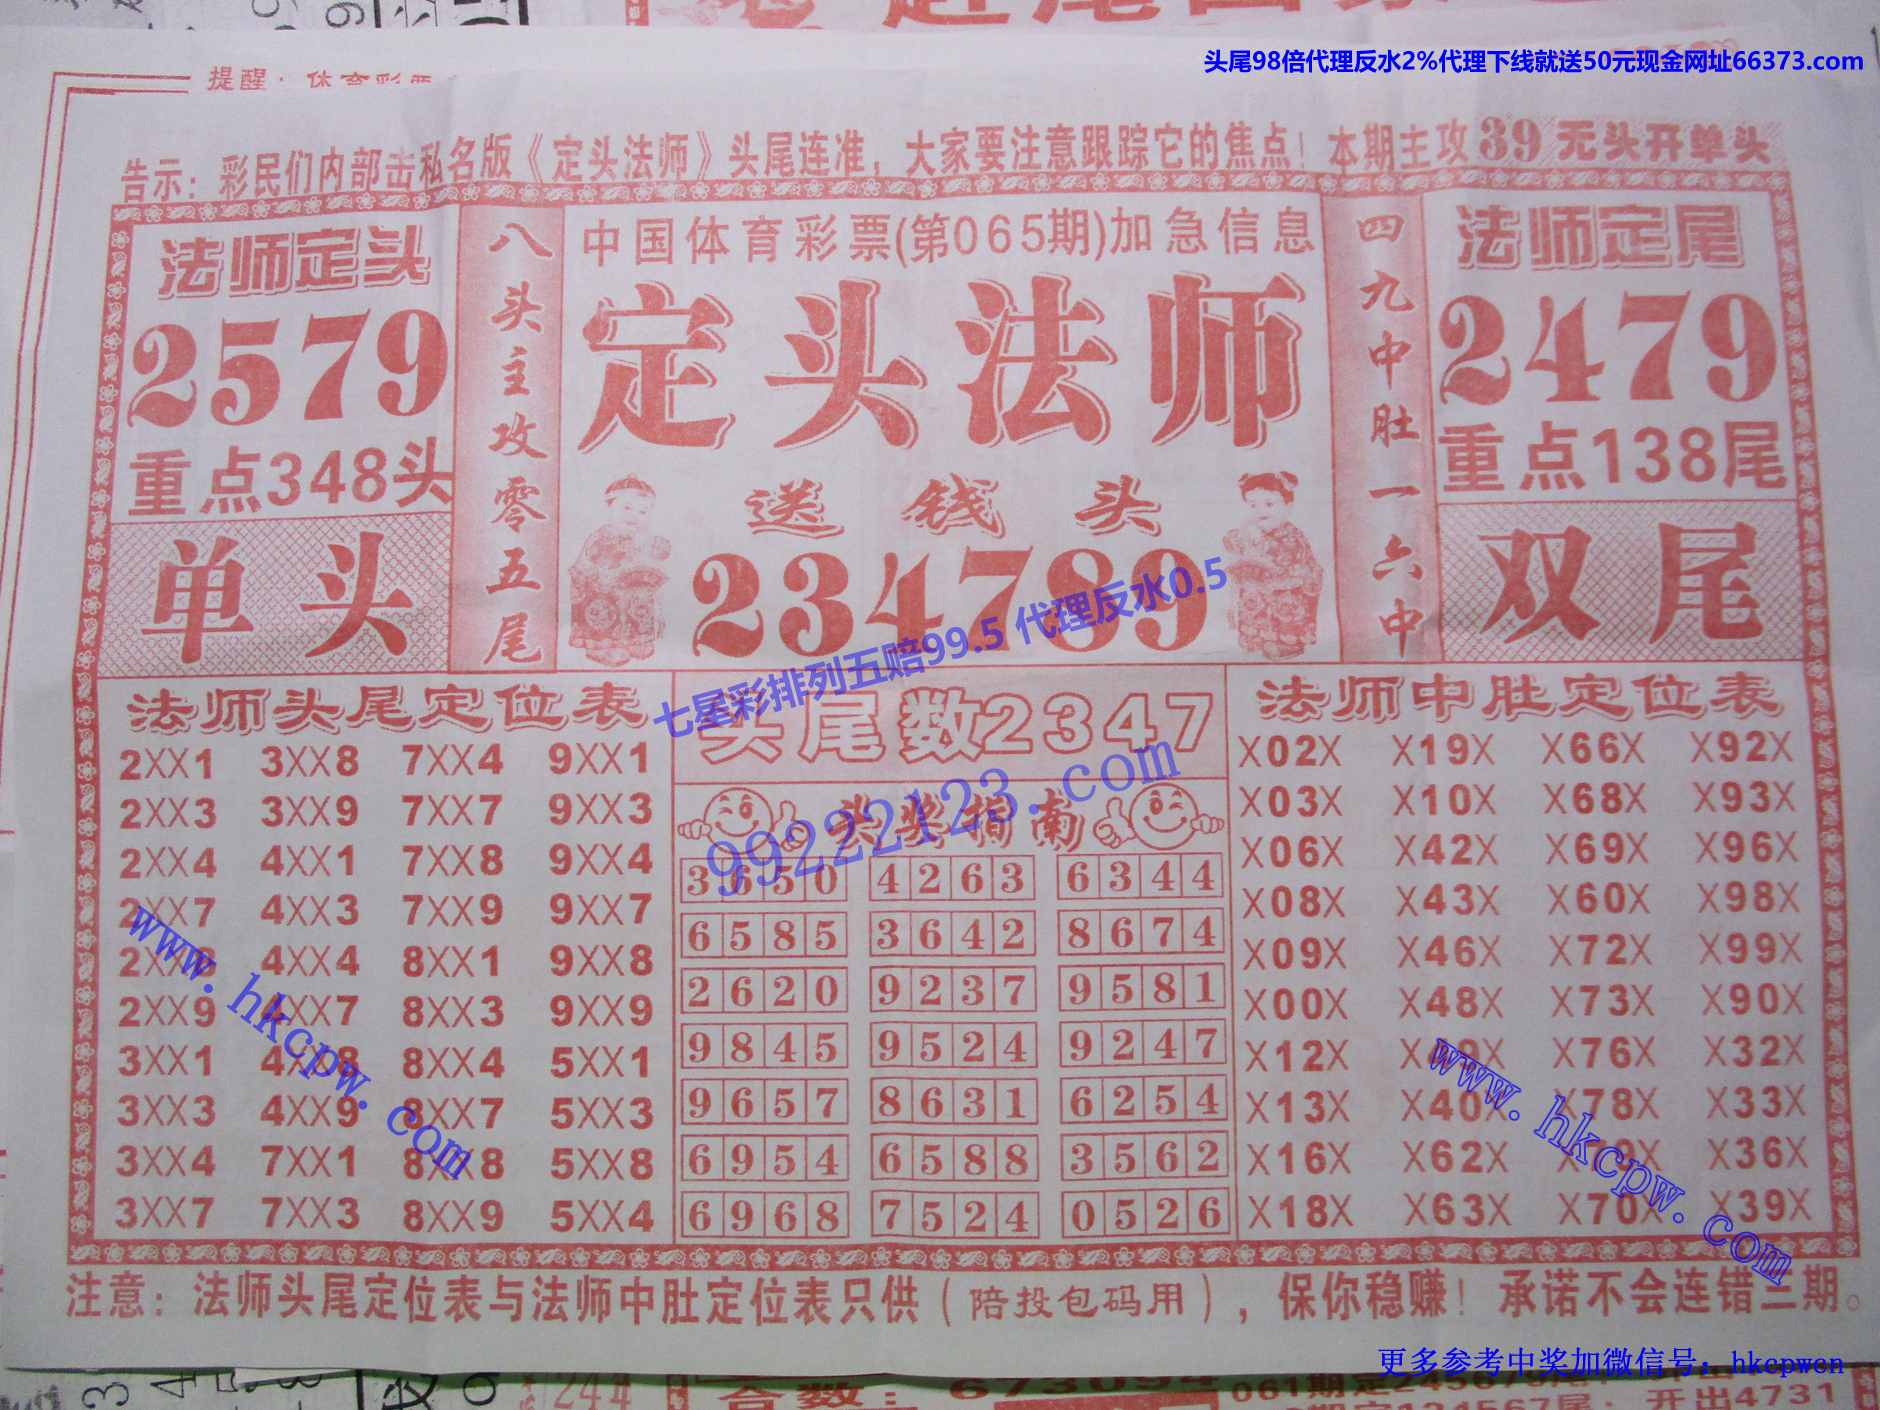 头尾98倍代理反水2%代理下线就送50元现金网址66373.com
告示：彩民们内部击私名版《定头法师》头尾连准，大家要注意跟踪它的焦点！本期主攻39无头开单头
法师定头
2579
重点348头
单头
八头主攻零五尾
中国体育彩票(第065期)加急信息
定头法师
送钱头
234789
四九中肚一六中
法师定尾
2479
重点138尾
双尾
七星彩排列五赔99.5 代理反水0.5
法师头尾定位表
2XX1 3XX8 7XX4 9XX1
2XX3 3XX9 7XX7 9XX3
2XX4 4XX1 7XX8 9XX4
2XX7 4XX3 7XX9 9XX7
2XX8 4XX4 8XX1 9XX8
2XX9 4XX7 8XX3 9XX9
3XX1 4XX8 8XX4 5XX1
3XX3 4XX9 8XX7 5XX3
3XX4 7XX1 8XX8 5XX8
3XX7 7XX3 8XX9 5XX4
头尾数2347
99222123.com
头奖指南
3650 4263 6344
6585 3642 8674
2620 9237 9581
9845 9524 9247
9657 8631 6254
6954 6588 3562
6968 7524 0526
法师中肚定位表
X02X X19X X66X X92X
X03X X10X X68X X93X
X06X X42X X69X X96X
X08X X43X X60X X98X
X09X X46X X72X X99X
X00X X48X X73X X90X
X12X X49X X76X X32X
X13X X40X X78X X33X
X16X X62X X79X X36X
X18X X63X X70X X39X
www.hkcpw.com
www.hkcpw.com
注意：法师头尾定位表与法师中肚定位表只供（陪投包码用），保你稳赚！承诺不会连错三期。
更多参考中奖加微信号：hkcpwcn